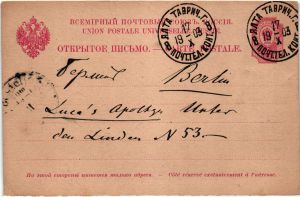 ВСЕМІРНЫЙ ПОЧТОВЫЙ СОЮЗЪ. РОССІЯ.
UNION POSTALE UNIVERSELLE. RUSSIE.
ОТКРЫТОЕ ПИСЬМО. — CARTE POSTALE.
ЯЛТА ТАВРИЧ. Г.
17
19 03
ПОЧТ. ТЕЛ. КОНТ.
ЯЛТА ТАВРИЧ. Г.
17
19 03
ПОЧТ. ТЕЛ. КОНТ.
Берлин Berlin
Luca's Apoth. Unter
den Linden N 53.—
На этой сторонѣ пишется только адресъ. — Côté réservé exclusivement à l'adresse.